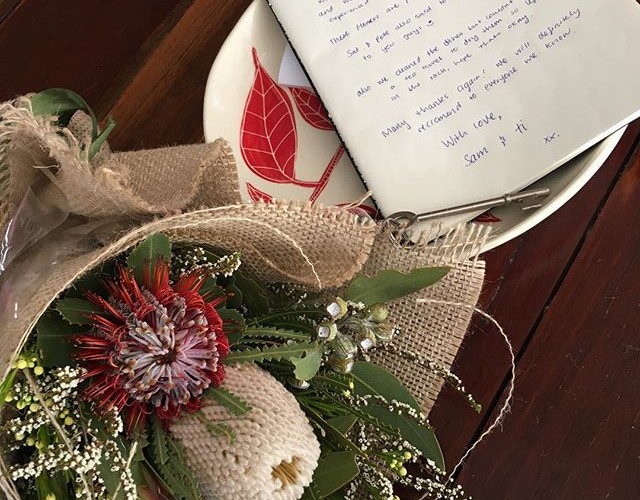 and w
experience
These flowers are f
Sal & Pete also said to
to you guys!
also we cleaned the dishes but couldn't
a tea towel to dry them so
in the rack, hope thats okay.
Many thanks again! We will definitely
reccomend to everyone we know.
With love,
Sam & Ti
xx.